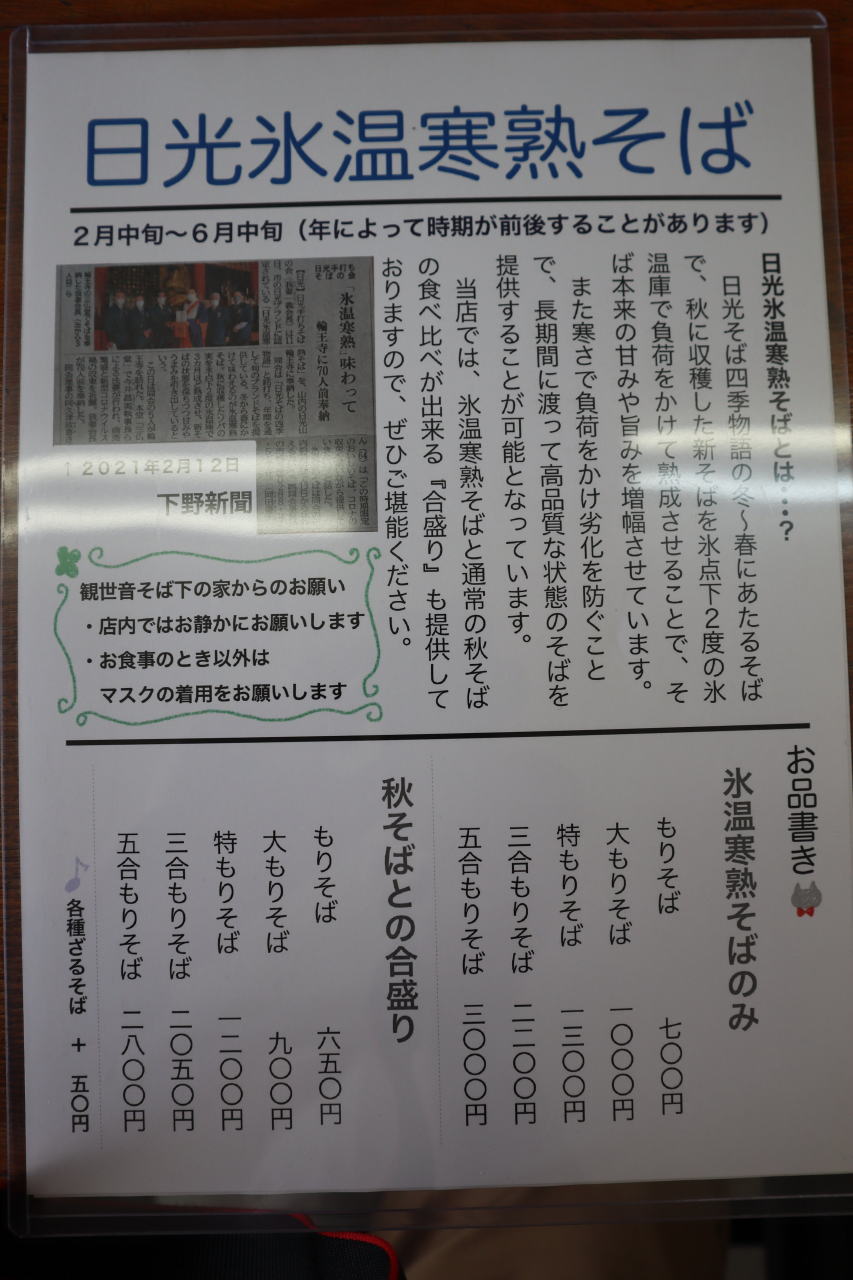 日光氷温寒熟そば
２月中旬～６月中旬（年によって時期が前後することがあります）
日光氷温寒熟そばとは…？
日光そば四季物語の冬～春にあたるそば
で、秋に収穫した新そばを氷点下２度の氷
温庫で負荷をかけて熟成させることで、そ
ば本来の甘みや旨みを増幅させています。
また寒さで負荷をかけ劣化を防ぐこと
で、長期間に渡って高品質な状態のそばを
提供することが可能となっています。
当店では、氷温寒熟そばと通常の秋そば
の食べ比べが出来る『合盛り』も提供して
おりますので、ぜひご堪能ください。
日光手打ち
そばの会
「氷温寒熟」味わって
輪王寺に70人前奉納
↑２０２１年２月１２日
下野新聞
観世音そば下の家からのお願い
・店内ではお静かにお願いします
・お食事のとき以外は
マスクの着用をお願いします
お品書き
氷温寒熟そばのみ
もりそば 七〇〇円
大もりそば 一〇〇〇円
特もりそば 一三〇〇円
三合もりそば 二二〇〇円
五合もりそば 三〇〇〇円
秋そばとの合盛り
もりそば 六五〇円
大もりそば 九〇〇円
特もりそば 一二〇〇円
三合もりそば 二〇五〇円
五合もりそば 二八〇〇円
各種ざるそば ＋ 五〇円